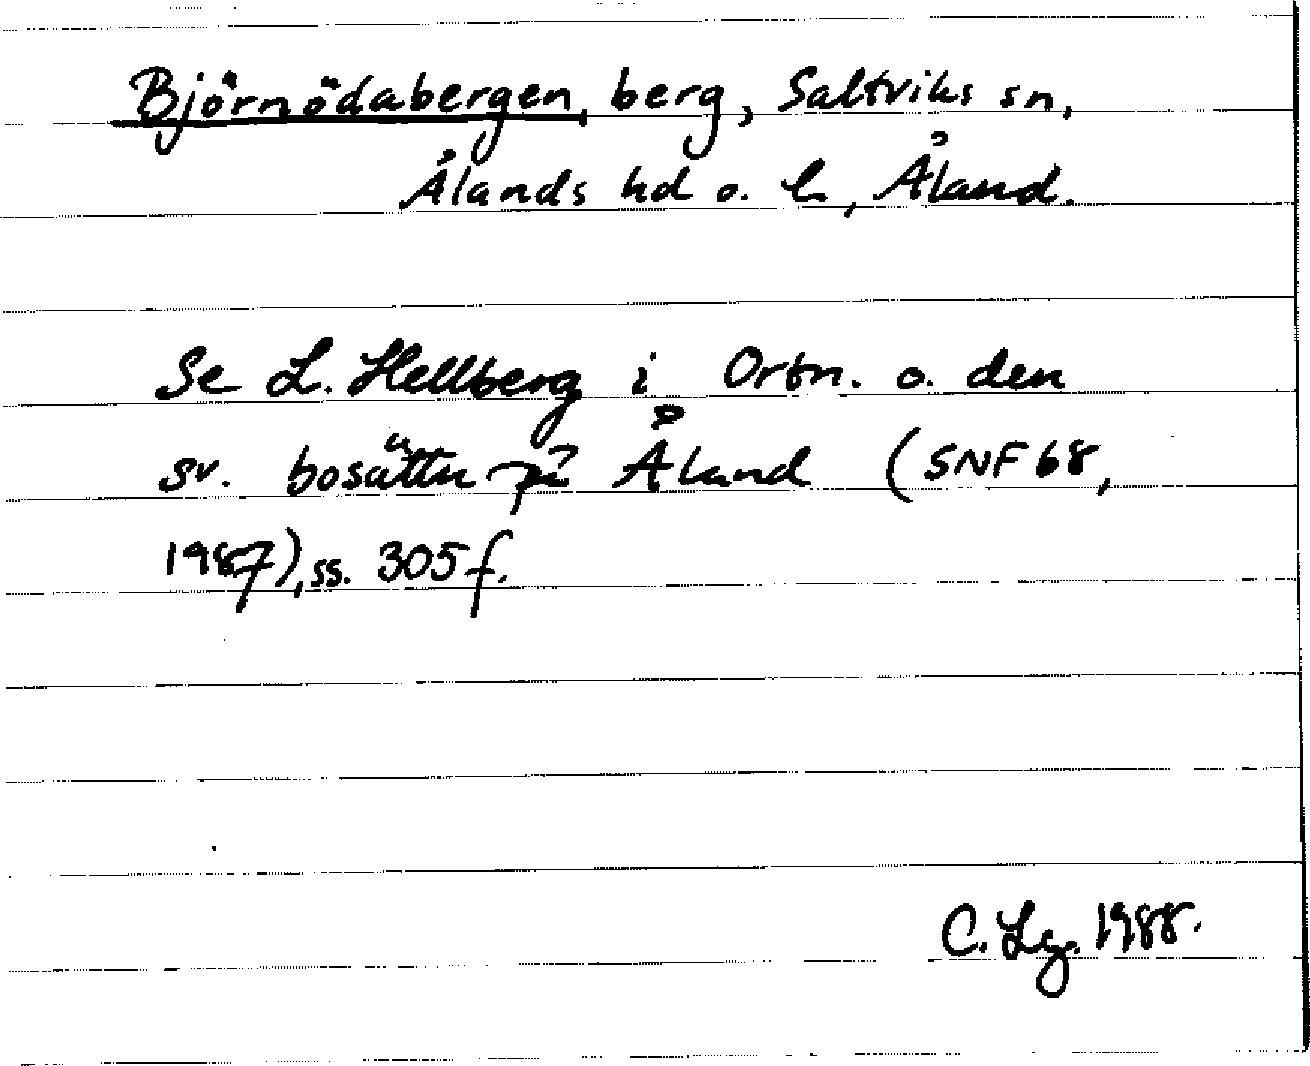 Björnödabergen, berg, Saltviks sn,
Ålands hd o. l., Åland.
Se L. Hellberg i Ortn. o. den
sv. bosättn på Åland (SNF 68,
1987), ss. 305 f.
C. Lg. 1988.